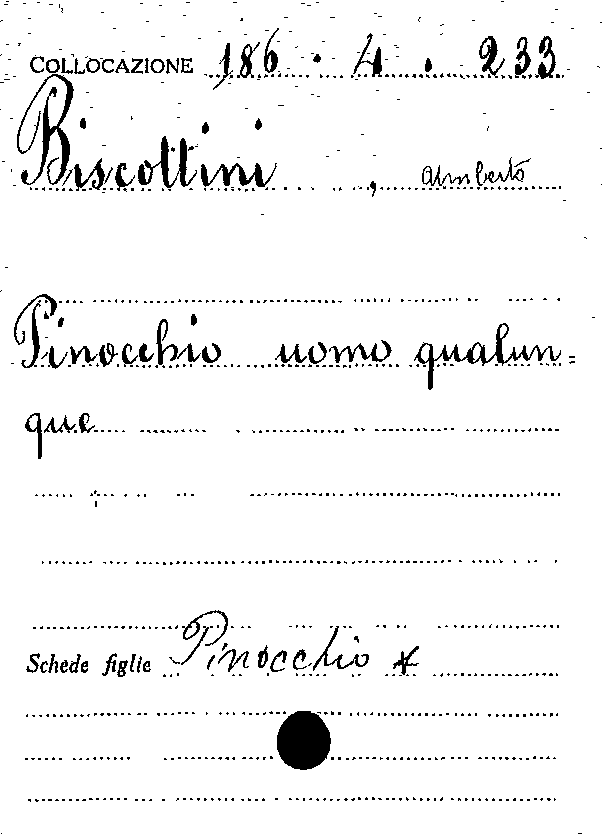 COLLOCAZIONE 186 . 4 . 233
Biscottini , Umberto
Pinocchio uomo qualun=
que
Schede figlie Pinocchio *